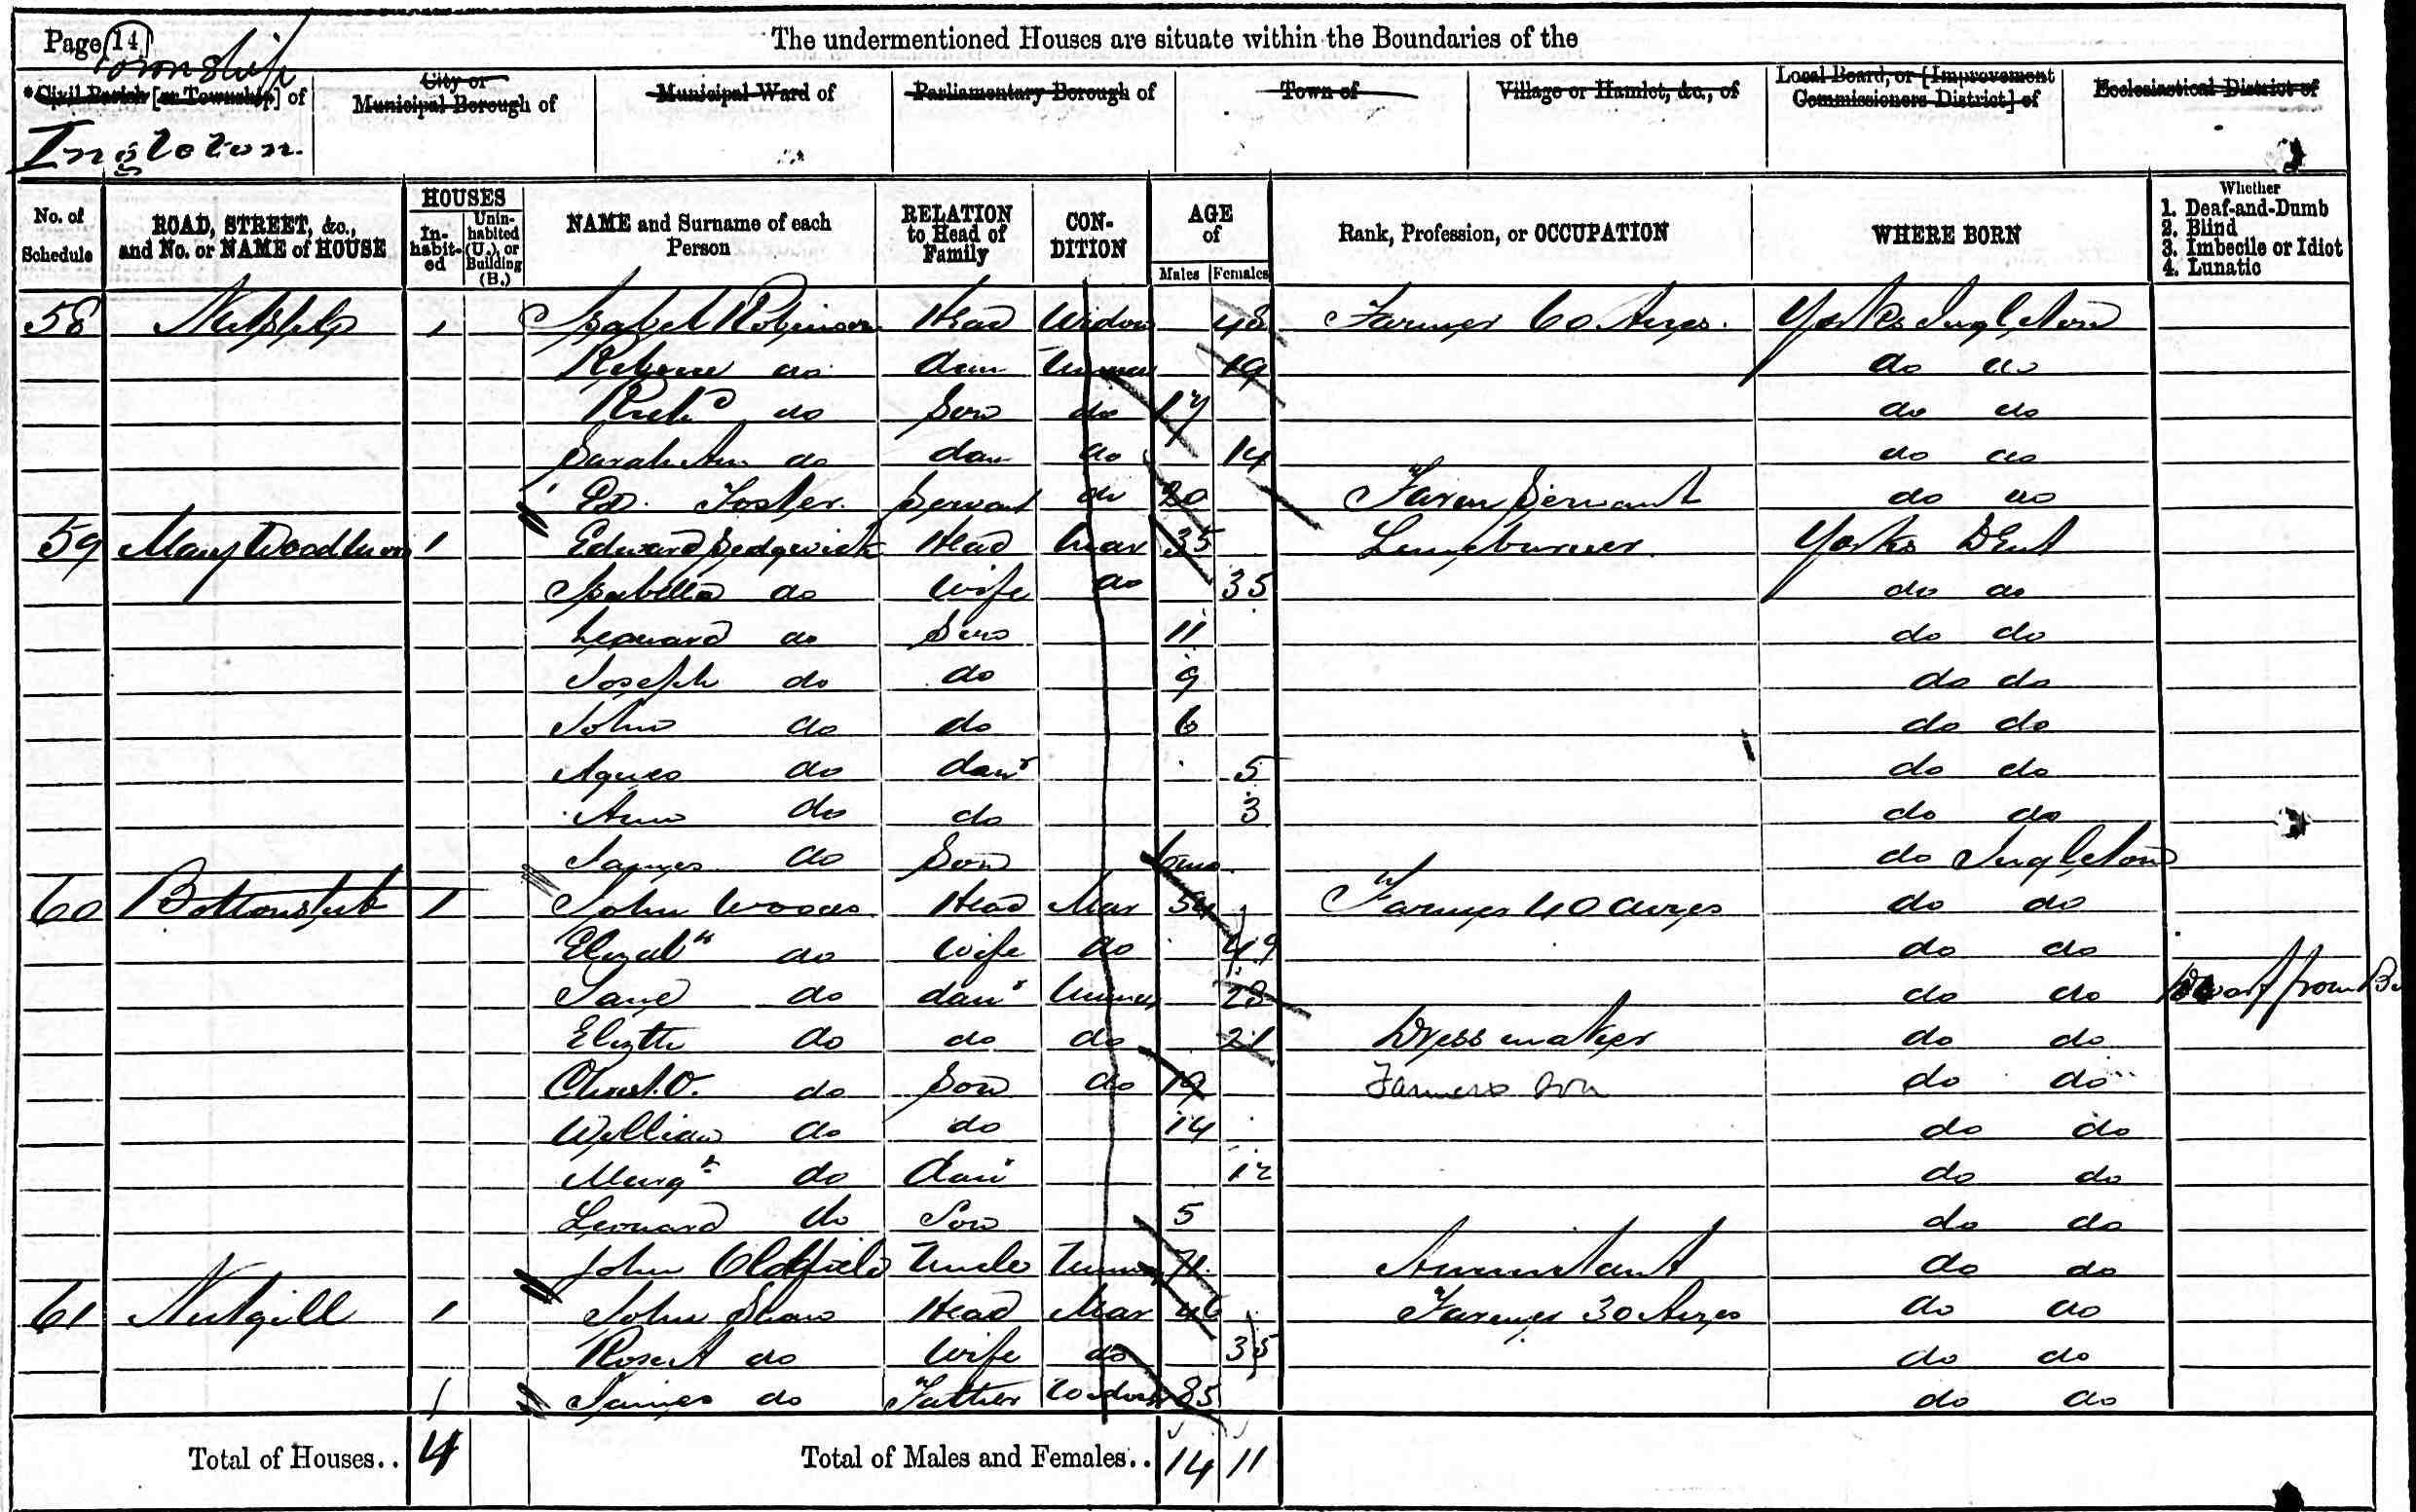 Page 14 The undermentioned Houses are situate within the Boundaries of the
Township
*Civil Parish [or Township] of City or Municipal Borough of Municipal Ward of Parliamentary Borough of Town of Village or Hamlet, &c., of Local Board, or [Improvement Commissioners District] of Ecclesiastical District of
Ingleton.
No. of Schedule ROAD, STREET, &c., and No. or NAME of HOUSE HOUSES Inhabited Uninhabited (U.), or Building (B.) NAME and Surname of each Person RELATION to Head of Family CONDITION AGE of Males Females Rank, Profession, or OCCUPATION WHERE BORN Whether 1. Deaf-and-Dumb 2. Blind 3. Imbecile or Idiot 4. Lunatic
58 1 Isabel Robinson Head Widow 48 Farmer 60 Acres. Yorks Ingleton
do dau Unmar 19 do do
Richd do Son do 17 do do
Sarah Ann do dau do 14 do do
Ed. Foster. Servant do 20 Farm Servant do do
59 1 Edward Sedgwick Head Mar 35 Limeburner. Yorks Dent
Isabella do Wife do 35 do do
Leonard do Son 11 do do
Joseph do do 9 do do
John do do 6 do do
Agnes do daur 5 do do
Ann do do 3 do do
James do Son do Ingleton
60 1 John Woods Head Mar 54 Farmer 40 acres do do
Elizabh do Wife do 49 do do
Jane do daur Unmar 28 do do Dwarf from
Elizth do do do 21 Dress maker do do
Christ. O. do Son do 19 Farmers son do do
William do do 14 do do
Margt do daur 12 do do
Leonard do Son 5 do do
John Oldfield Uncle Unmar 71 do do
61 Nutgill 1 John Shaw Head Mar 46 Farmer 30 Acres do do
do Wife do 35 do do
James do Father Widowr 85 do do
Total of Houses.. 4 Total of Males and Females.. 14 11